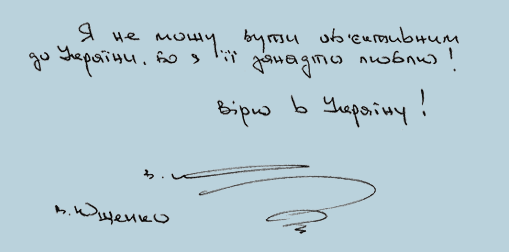 Я не можу бути об'єктивним
до України, бо я її занадто люблю!
Вірю в Україну!
В.
В. Ющенко